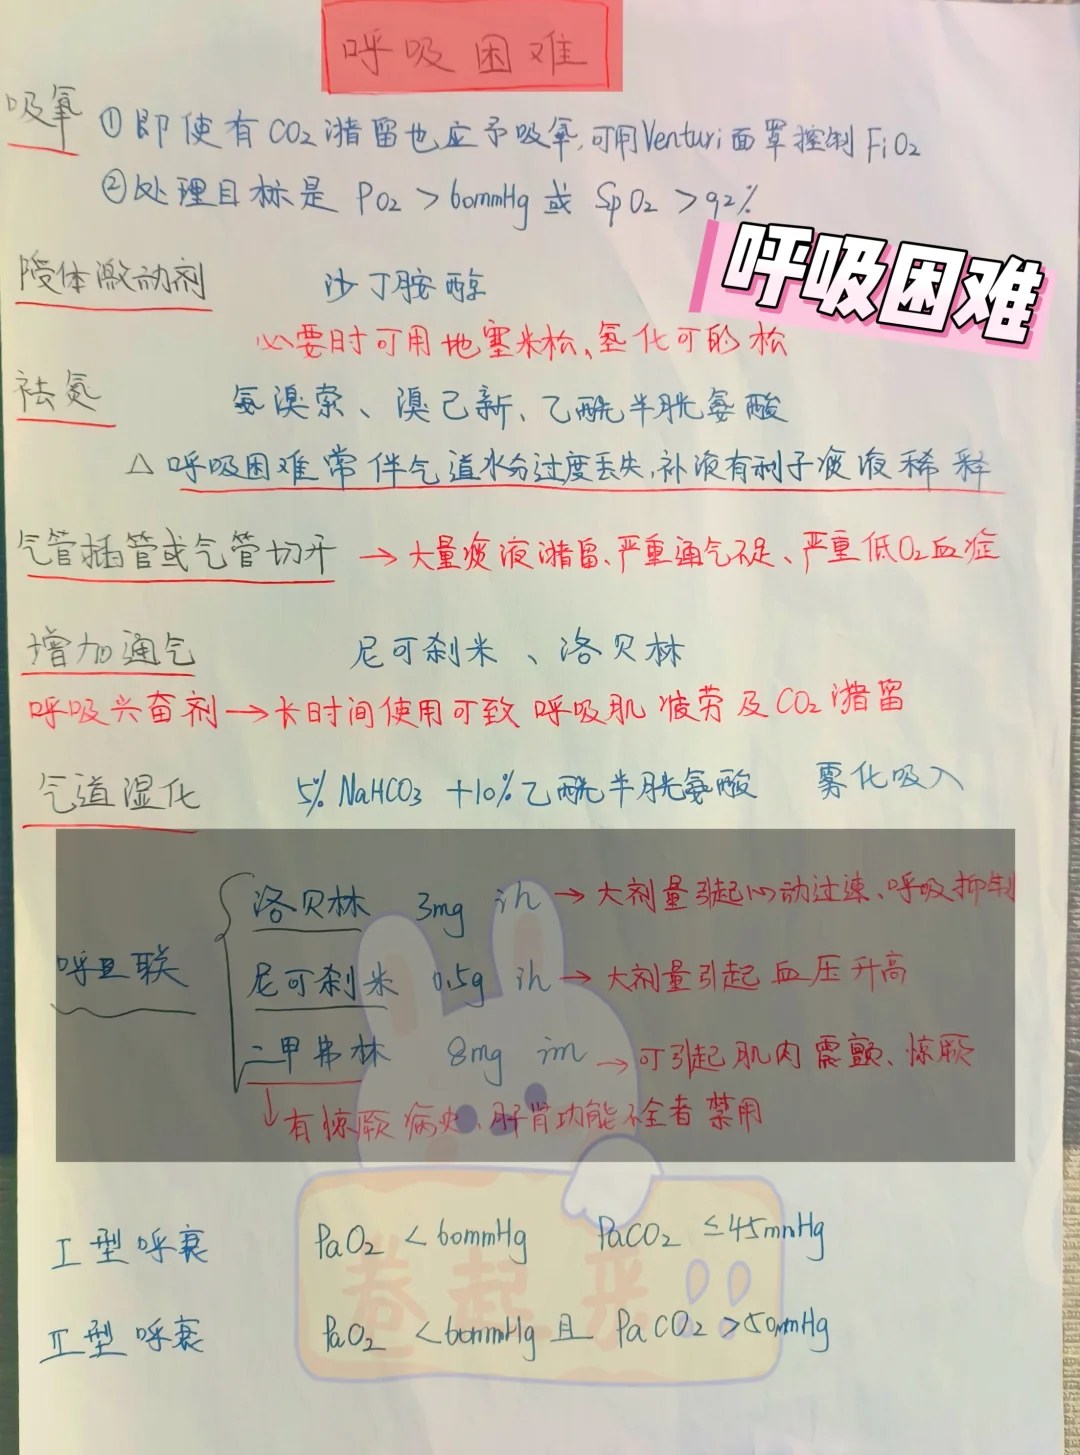 呼吸困难
吸氧 ①即使有CO2潴留也应予吸氧,可用Venturi面罩控制FiO2
②处理目标是 PO2>60mmHg 或 SpO2>92%
呼吸困难
受体激动剂 沙丁胺醇
必要时可用地塞米松、氢化可的松
祛氮 氨溴索、溴己新、乙酰半胱氨酸
△ 呼吸困难常伴气道水分过度丢失,补液有利于痰液稀释
气管插管或气管切开 →大量痰液潴留、严重通气不足、严重低O2血症
增加通气 尼可刹米、洛贝林
呼吸兴奋剂→长时间使用可致 呼吸肌疲劳及CO2潴留
气道湿化 5%NaHCO3 +10%乙酰半胱氨酸 雾化吸入
洛贝林 3mg ih →大剂量引起心动过速、呼吸抑制
呼且联 尼可刹米 0.5g ih →大剂量引起血压升高
二甲弗林 8mg im →可引起肌肉震颤、惊厥
↓有惊厥病史、肝肾功能不全者禁用
I型呼衰 PaO2 <60mmHg PaCO2 ≤45mmHg
卷起来
II型呼衰 PaO2 <60mmHg且 PaCO2>50mmHg